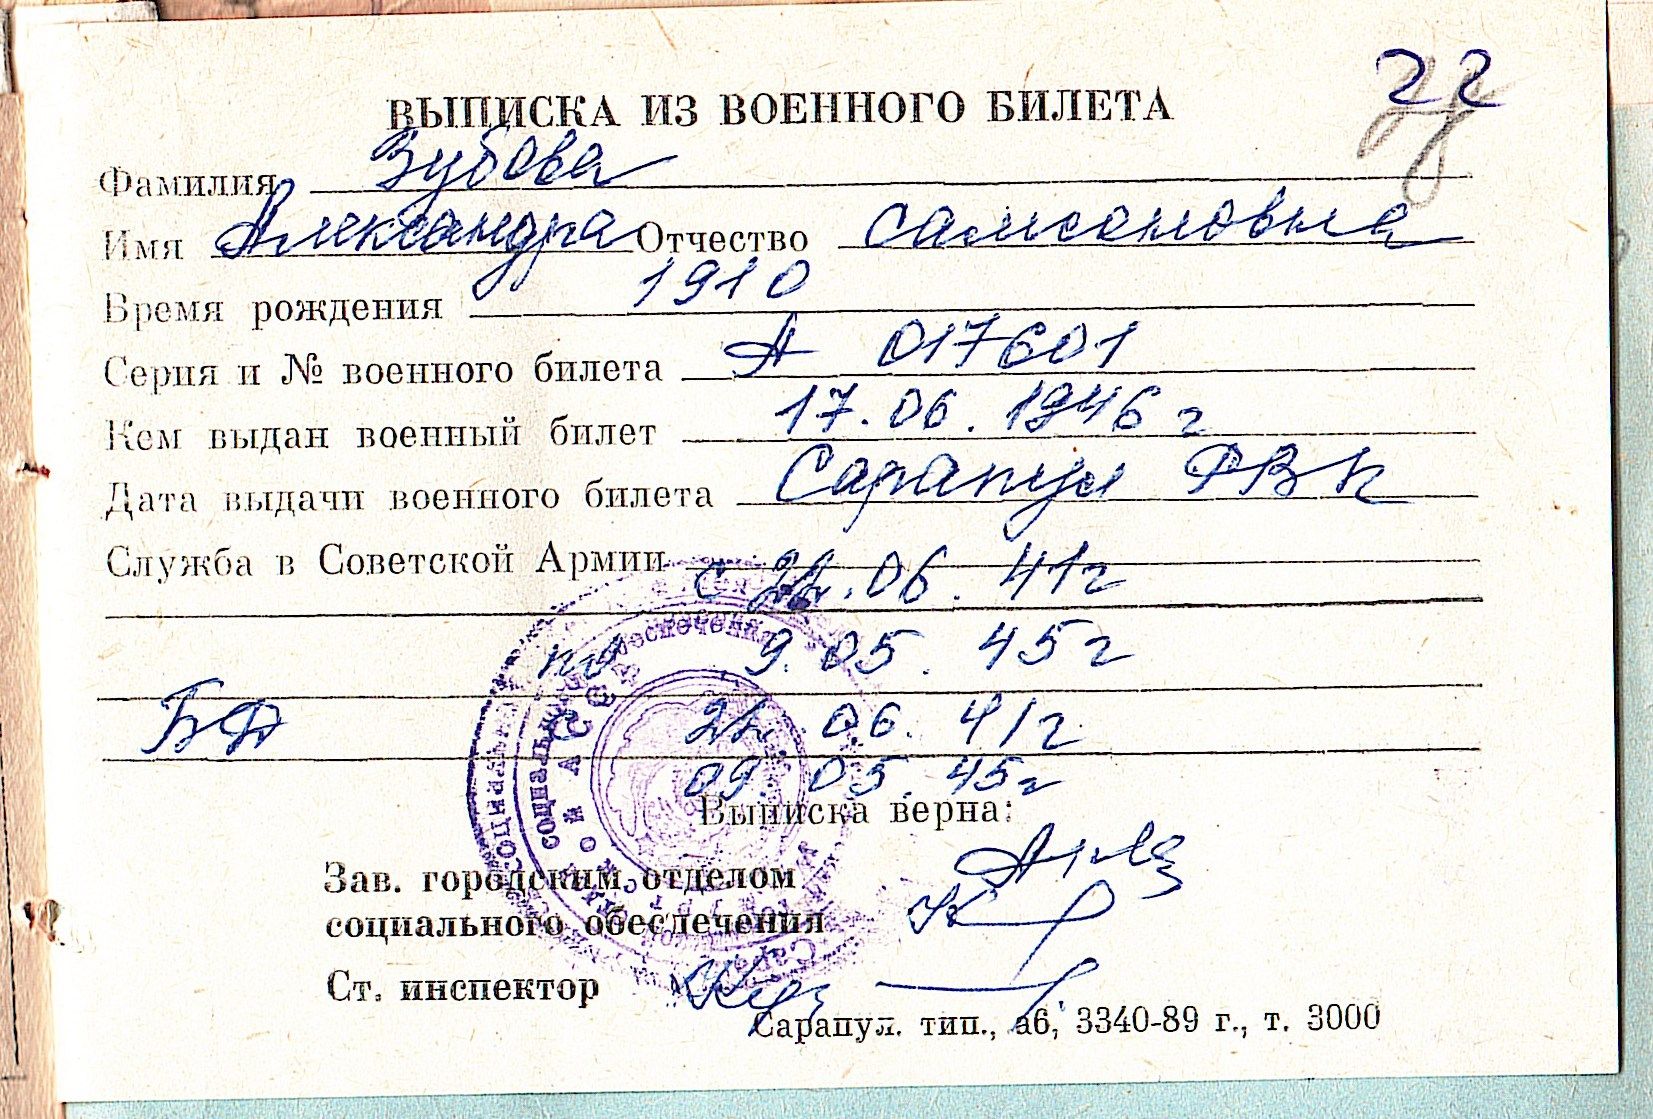 22
ВЫПИСКА ИЗ ВОЕННОГО БИЛЕТА
Фамилия Зубова
Имя Александра Отчество Самсоновна
Время рождения 1910
Серия и № военного билета А 017601
Кем выдан военный билет 17.06.1946 г
Дата выдачи военного билета Сарапул РВК
Служба в Советской Армии с 22.06.41г
по 9.05.45г
БД 22.06.41г
09.05.45г
Выписка верна:
Зав. городским отделом
социального обеспечения
Ст. инспектор
Сарапул. тип., а6, 3340-89 г., т. 3000